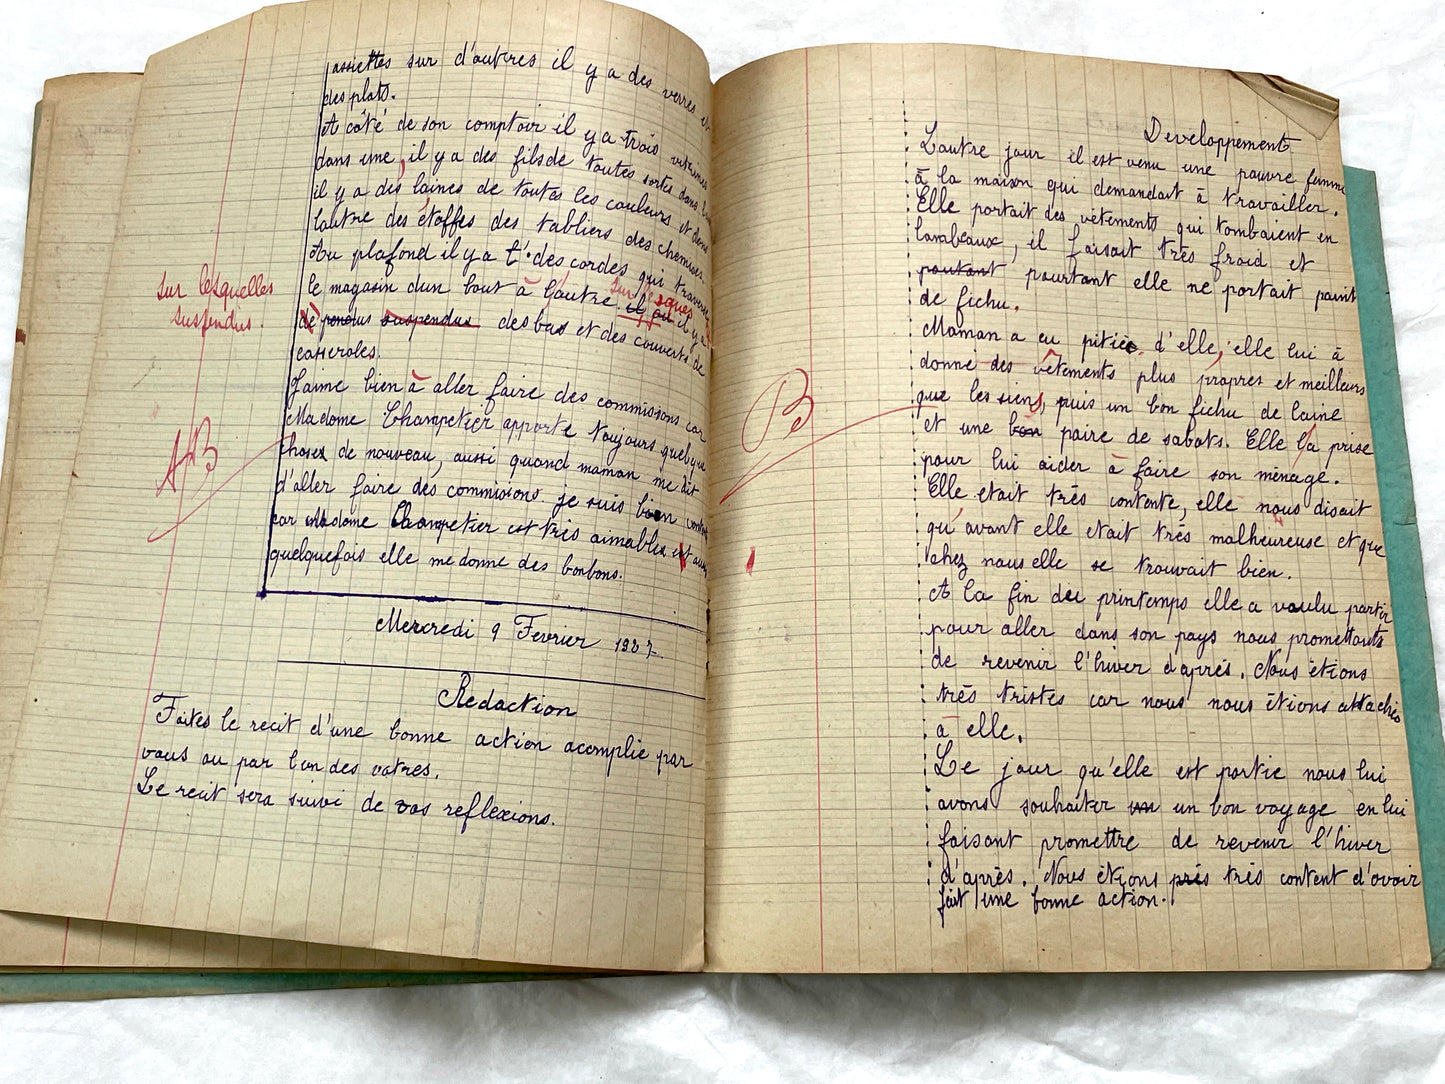 assiettes sur d'autres il y a des verres et
des plats.
A côté de son comptoir il y a trois vitrines
dans une, il y a des fils de toutes sortes dans l'une
il y a des laines de toutes les couleurs et dans
lautre des étoffes des tabliers des chemises.
Au plafond il y a t' des cordes qui traverse
le magasin dun bout à l'autre il ou il y a
sur lesques
de pendus suspendux des bas et des couverts de
casseroles.
sur lesquelles
suspendus.
J'aime bien à aller faire des commissions car
Madame Champetier apporte toujours quelque
choses de nouveau, aussi quand maman me dit
d'aller faire des commissions je suis bien contente
car Madame Champetier est très aimables et aussi
quelquefois elle me donne des bonbons.
AB
Mercredi 9 Fevrier 1927.
Redaction
Faites le recit d'une bonne action acomplie par
vous ou par l'un des votres.
Le recit sera suivi de vos reflexions.
Developpements
L'autre jour il est venu une pauvre femme
à la maison qui demandait à travailler.
Elle portait des vêtements qui tombaient en
lambeaux, il faisait très froid et
poutant pourtant elle ne portait point
de fichu.
Maman a eu pitiée d'elle, elle lui à
donné des vêtements plus propres et meilleurs
que les siens, puis un bon fichu de laine
et une bon paire de sabots. Elle l'a prise
pour lui aider à faire son ménage.
Elle etait très contente, elle nous disait
qu'avant elle etait très malheureuse et que
chez nous elle se trouvait bien.
A la fin du printemps elle a voulu partir
pour aller dans son pays nous promettants
de revenir l'hiver d'après. Nous étions
très tristes car nous nous étions attachés
à elle.
Le jour qu'elle est partie nous lui
avons souhaiter un un bon voyage en lui
faisant promettre de revenir l'hiver
d'après. Nous étions près très content d'avoir
fait une bonne action.
B